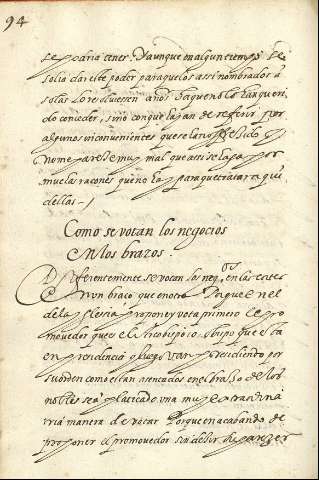 94
se podria tener. Y aunque en algun tiempo se
solia dar este poder para que los assi nombrados a
solas lo resoluiessen años ha que no lo han queri
do conceder, sino con que hayan de referir por
algunos inconuenientes que se han offrecido y
no me parece muy mal que assi se haga por
muchas razones que no hay para que tratar aqui
dellas —
Como se votan los negocios
en los brazos.
Differentemente se votan los neg.os en las cortes
en un braço que en otro Porque en el
de la yglesia propone y vota primero el pro
mouedor que es el Arcobispo o obispo que esta
en presidencia y luego van procediendo por
su orden como estan asentados en el brasso de los
nobles se a platicado una muy extraordina
ria manera de votar Porque en acabando de
proponer el promouedor sin dezir su parecer